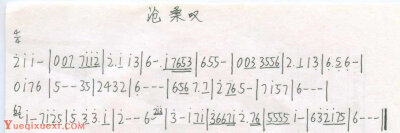 沧桑叹
2 i i - | 0 0 7 7 i i 2 | 2 . i i 3 | 6 - . i 7 6 5 3 | 6 5 5 - | 0 0 3 3 5 5 6 | 2 . 1 1 3 | 6 . 5 6 - |
0 i 7 6 | 5 - - 3 5 | 2 4 3 2 | 6 - - - | 6 5 6 7 . 7 | 2 7 6 5 - | 7 i 5 7 | 6 - - - |
i - 7 i 2 5 | 5 . 3 3 . i | 2 - - 6 | 3 - 1 7 i | 3 6 6 7 i 2 . 7 6 | 5 5 5 5 i - | 6 3 2 i 7 5 | 6 - - - ‖
Yueqixuexi.com